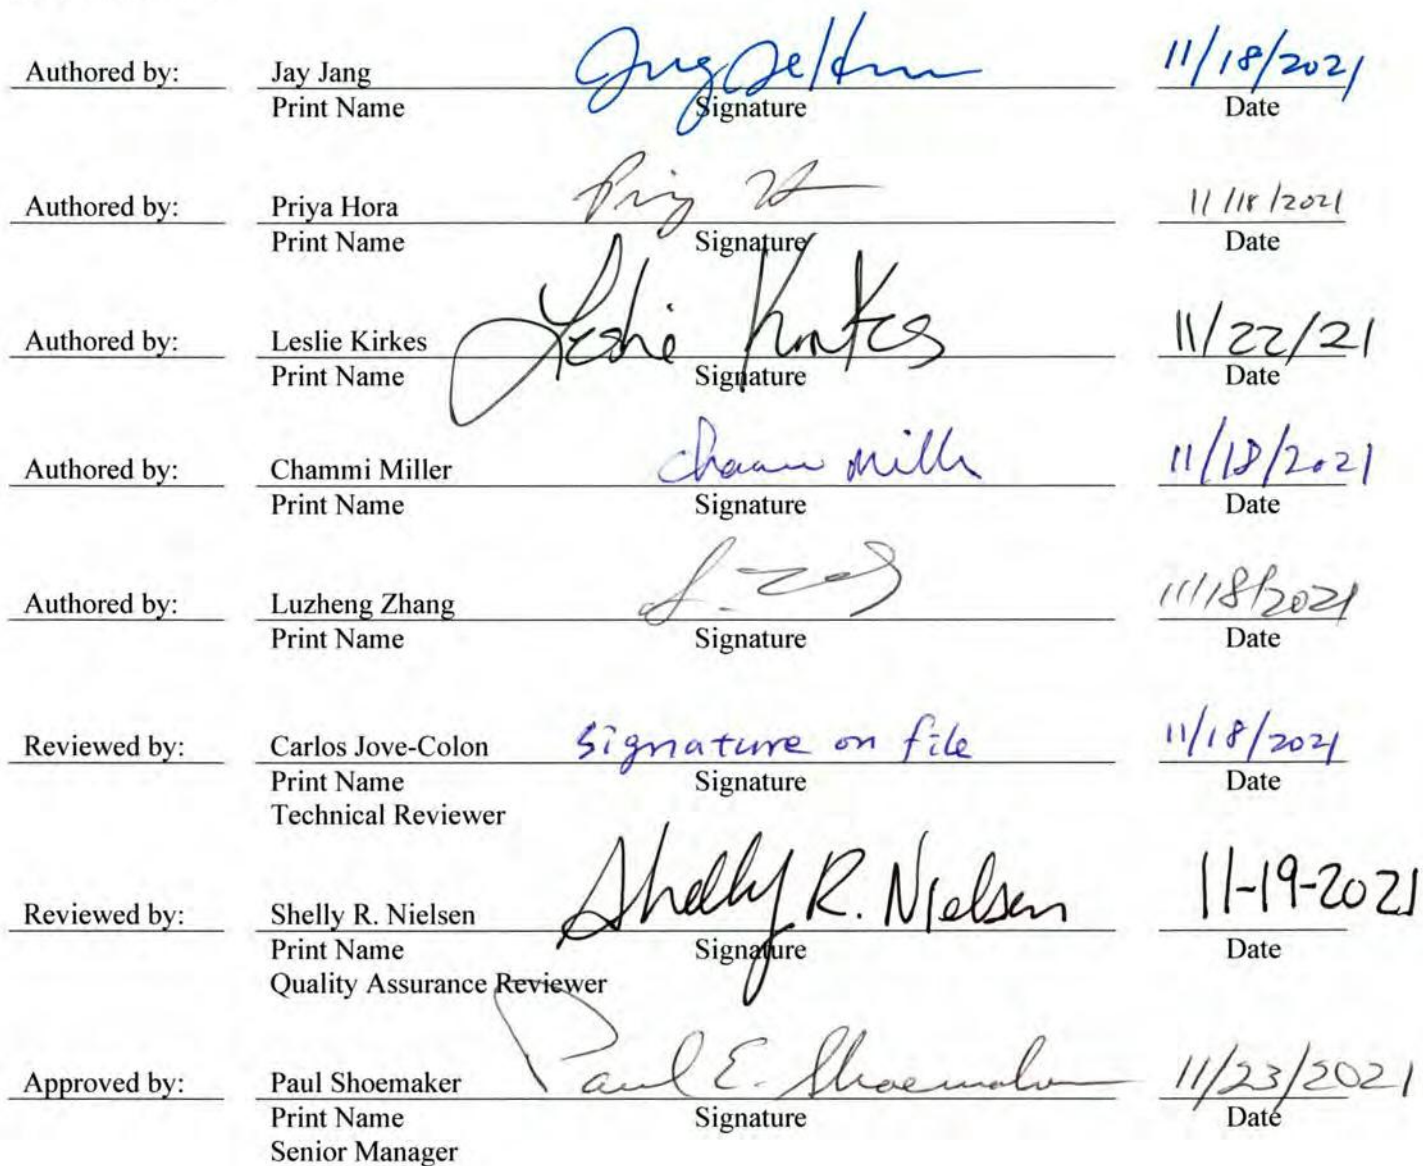 Authored by: Jay Jang 11/18/2021
Print Name Signature Date
Authored by: Priya Hora 11/18/2021
Print Name Signature Date
Authored by: Leslie Kirkes Leslie Kirkes 11/22/21
Print Name Signature Date
Authored by: Chammi Miller Chammi Miller 11/18/2021
Print Name Signature Date
Authored by: Luzheng Zhang 11/18/2021
Print Name Signature Date
Reviewed by: Carlos Jove-Colon Signature on file 11/18/2021
Print Name Signature Date
Technical Reviewer
Reviewed by: Shelly R. Nielsen Shelly R. Nielsen 11-19-2021
Print Name Signature Date
Quality Assurance Reviewer
Approved by: Paul Shoemaker Paul E. Shoemaker 11/23/2021
Print Name Signature Date
Senior Manager